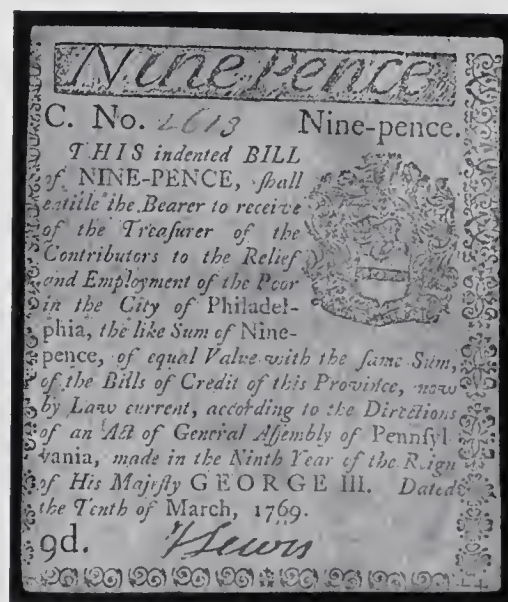 Nine Pence
C. No. 2613 Nine-pence.
THIS indented BILL
of NINE-PENCE, ſhall
entitle the Bearer to receive
of the Treaſurer of the
Contributors to the Relief
and Employment of the Poor
in the City of Philadel-
phia, the like Sum of Nine-
pence, of equal Value with the ſame Sum,
of the Bills of Credit of this Province, now
by Law current, according to the Directions
of an Act of General Aſſembly of Pennſyl-
vania, made in the Ninth Year of the Reign
of His Majeſty GEORGE III. Dated
the Tenth of March, 1769.
9d. Lewis